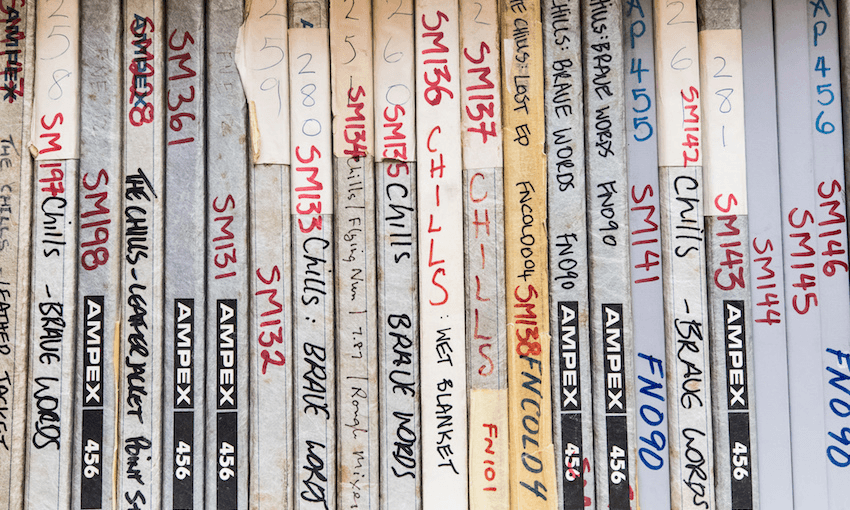 AMPEX
THE CHILLS - LEATHER JACKET
258
SM197
Chills - BRAVE WORDS
SM198
AMPEX
456
AMPEX
THE CHILLS - LEATHERJACKET POINT
SM361
AMPEX
456
SM131
AMPEX
456
259
SM132
280
SM133
Chills : BRAVE WORDS
25
SM134
Chills / Flying Nun / 7.87 / Rough Mixes
260
SM135
Chills BRAVE WORDS
SM136 CHILLS : WET BLANKET
2
SM137
CHILLS
FN101
THE CHILLS: LOST EP
FNCOLD004
SM138
FNCOLD4
CHILLS: BRAVE WORDS FN090
AMPEX
456
CHILLS: BRAVE WORDS FN090
AMPEX
456
XP455
SM141
FN090
26
SM142
Chills - BRAVE WORDS
281
SM143
AMPEX
456
SM144
SM145
XP456
SM146
FN090